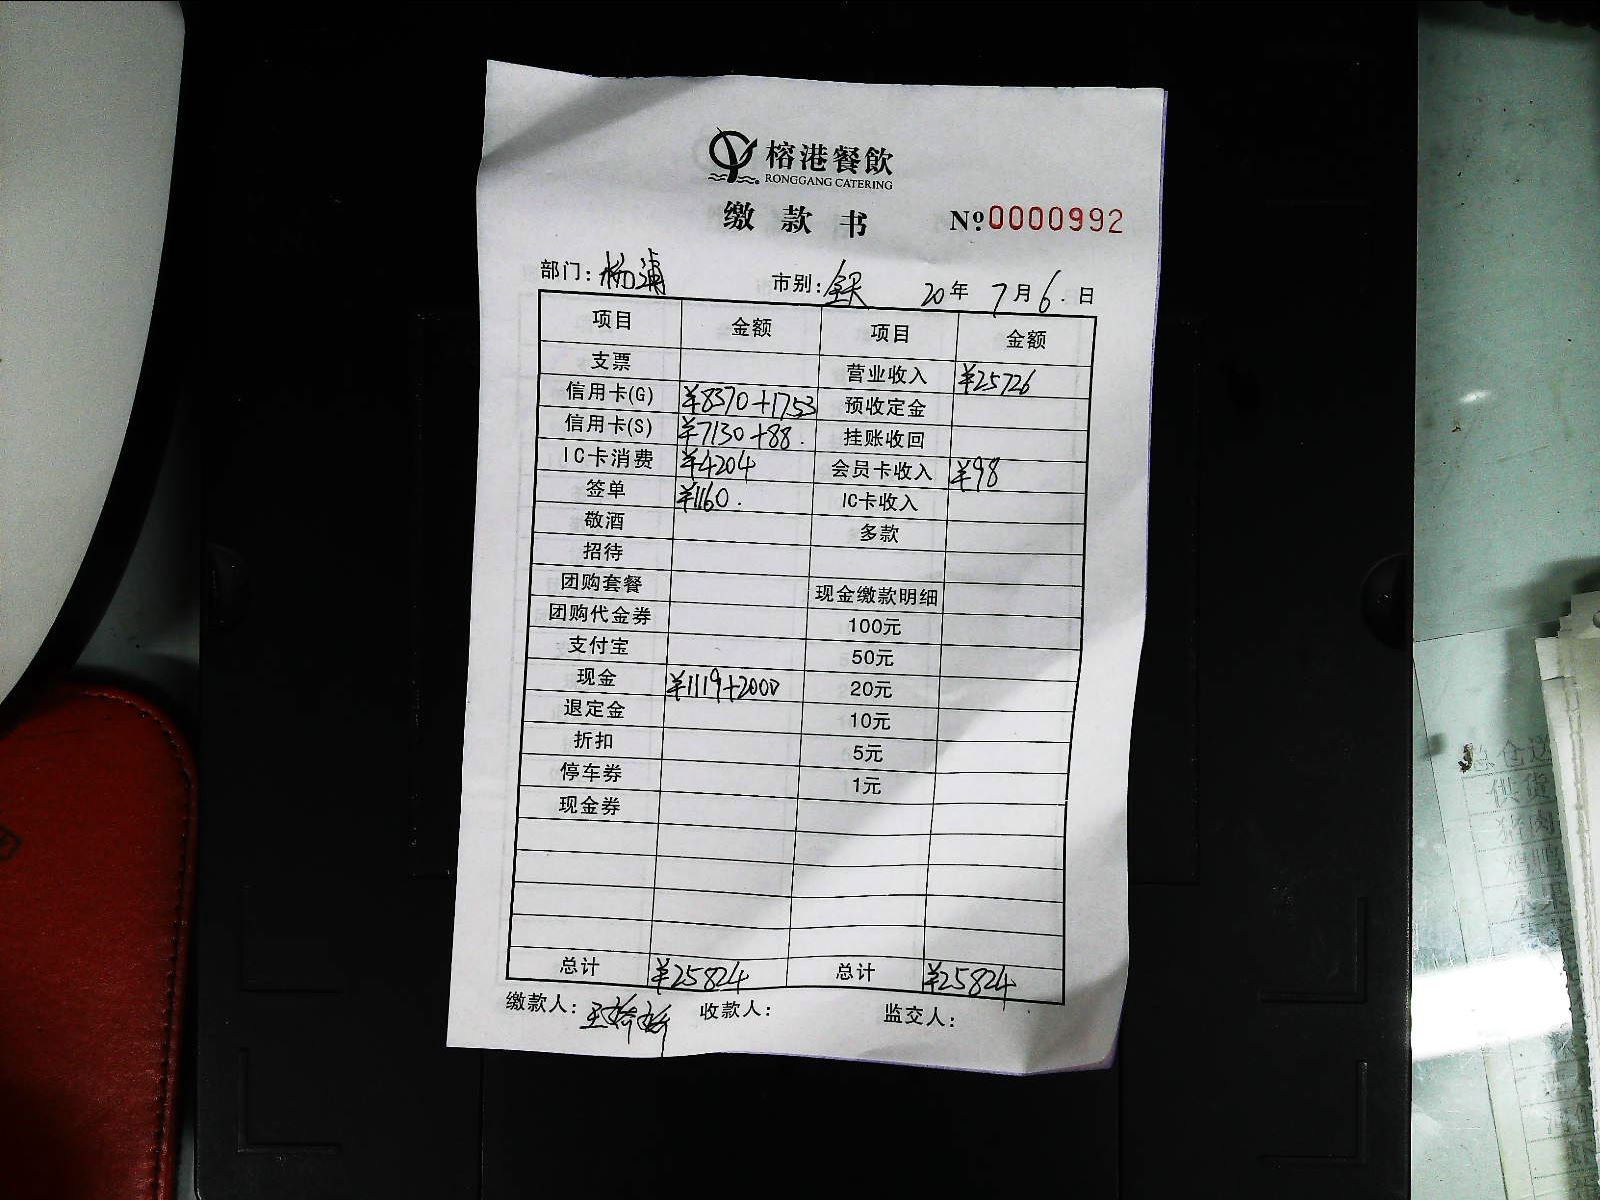 榕港餐飲
RONGGANG CATERING
缴款书 Nº0000992
部门:杨浦 市别:全天 20年7月6.日
项目 金额 项目 金额
支票 营业收入 ¥25726
信用卡(G) ¥8370+1753 预收定金
信用卡(S) ¥7130+88. 挂账收回
IC卡消费 ¥4204 会员卡收入 ¥98
签单 ¥1160. IC卡收入
敬酒 多款
招待
团购套餐 现金缴款明细
团购代金券 100元
支付宝 50元
现金 ¥1119+2000 20元
退定金 10元
折扣 5元
停车券 1元
现金券
总计 ¥25824 总计 ¥25824
缴款人: 收款人: 监交人:
供货